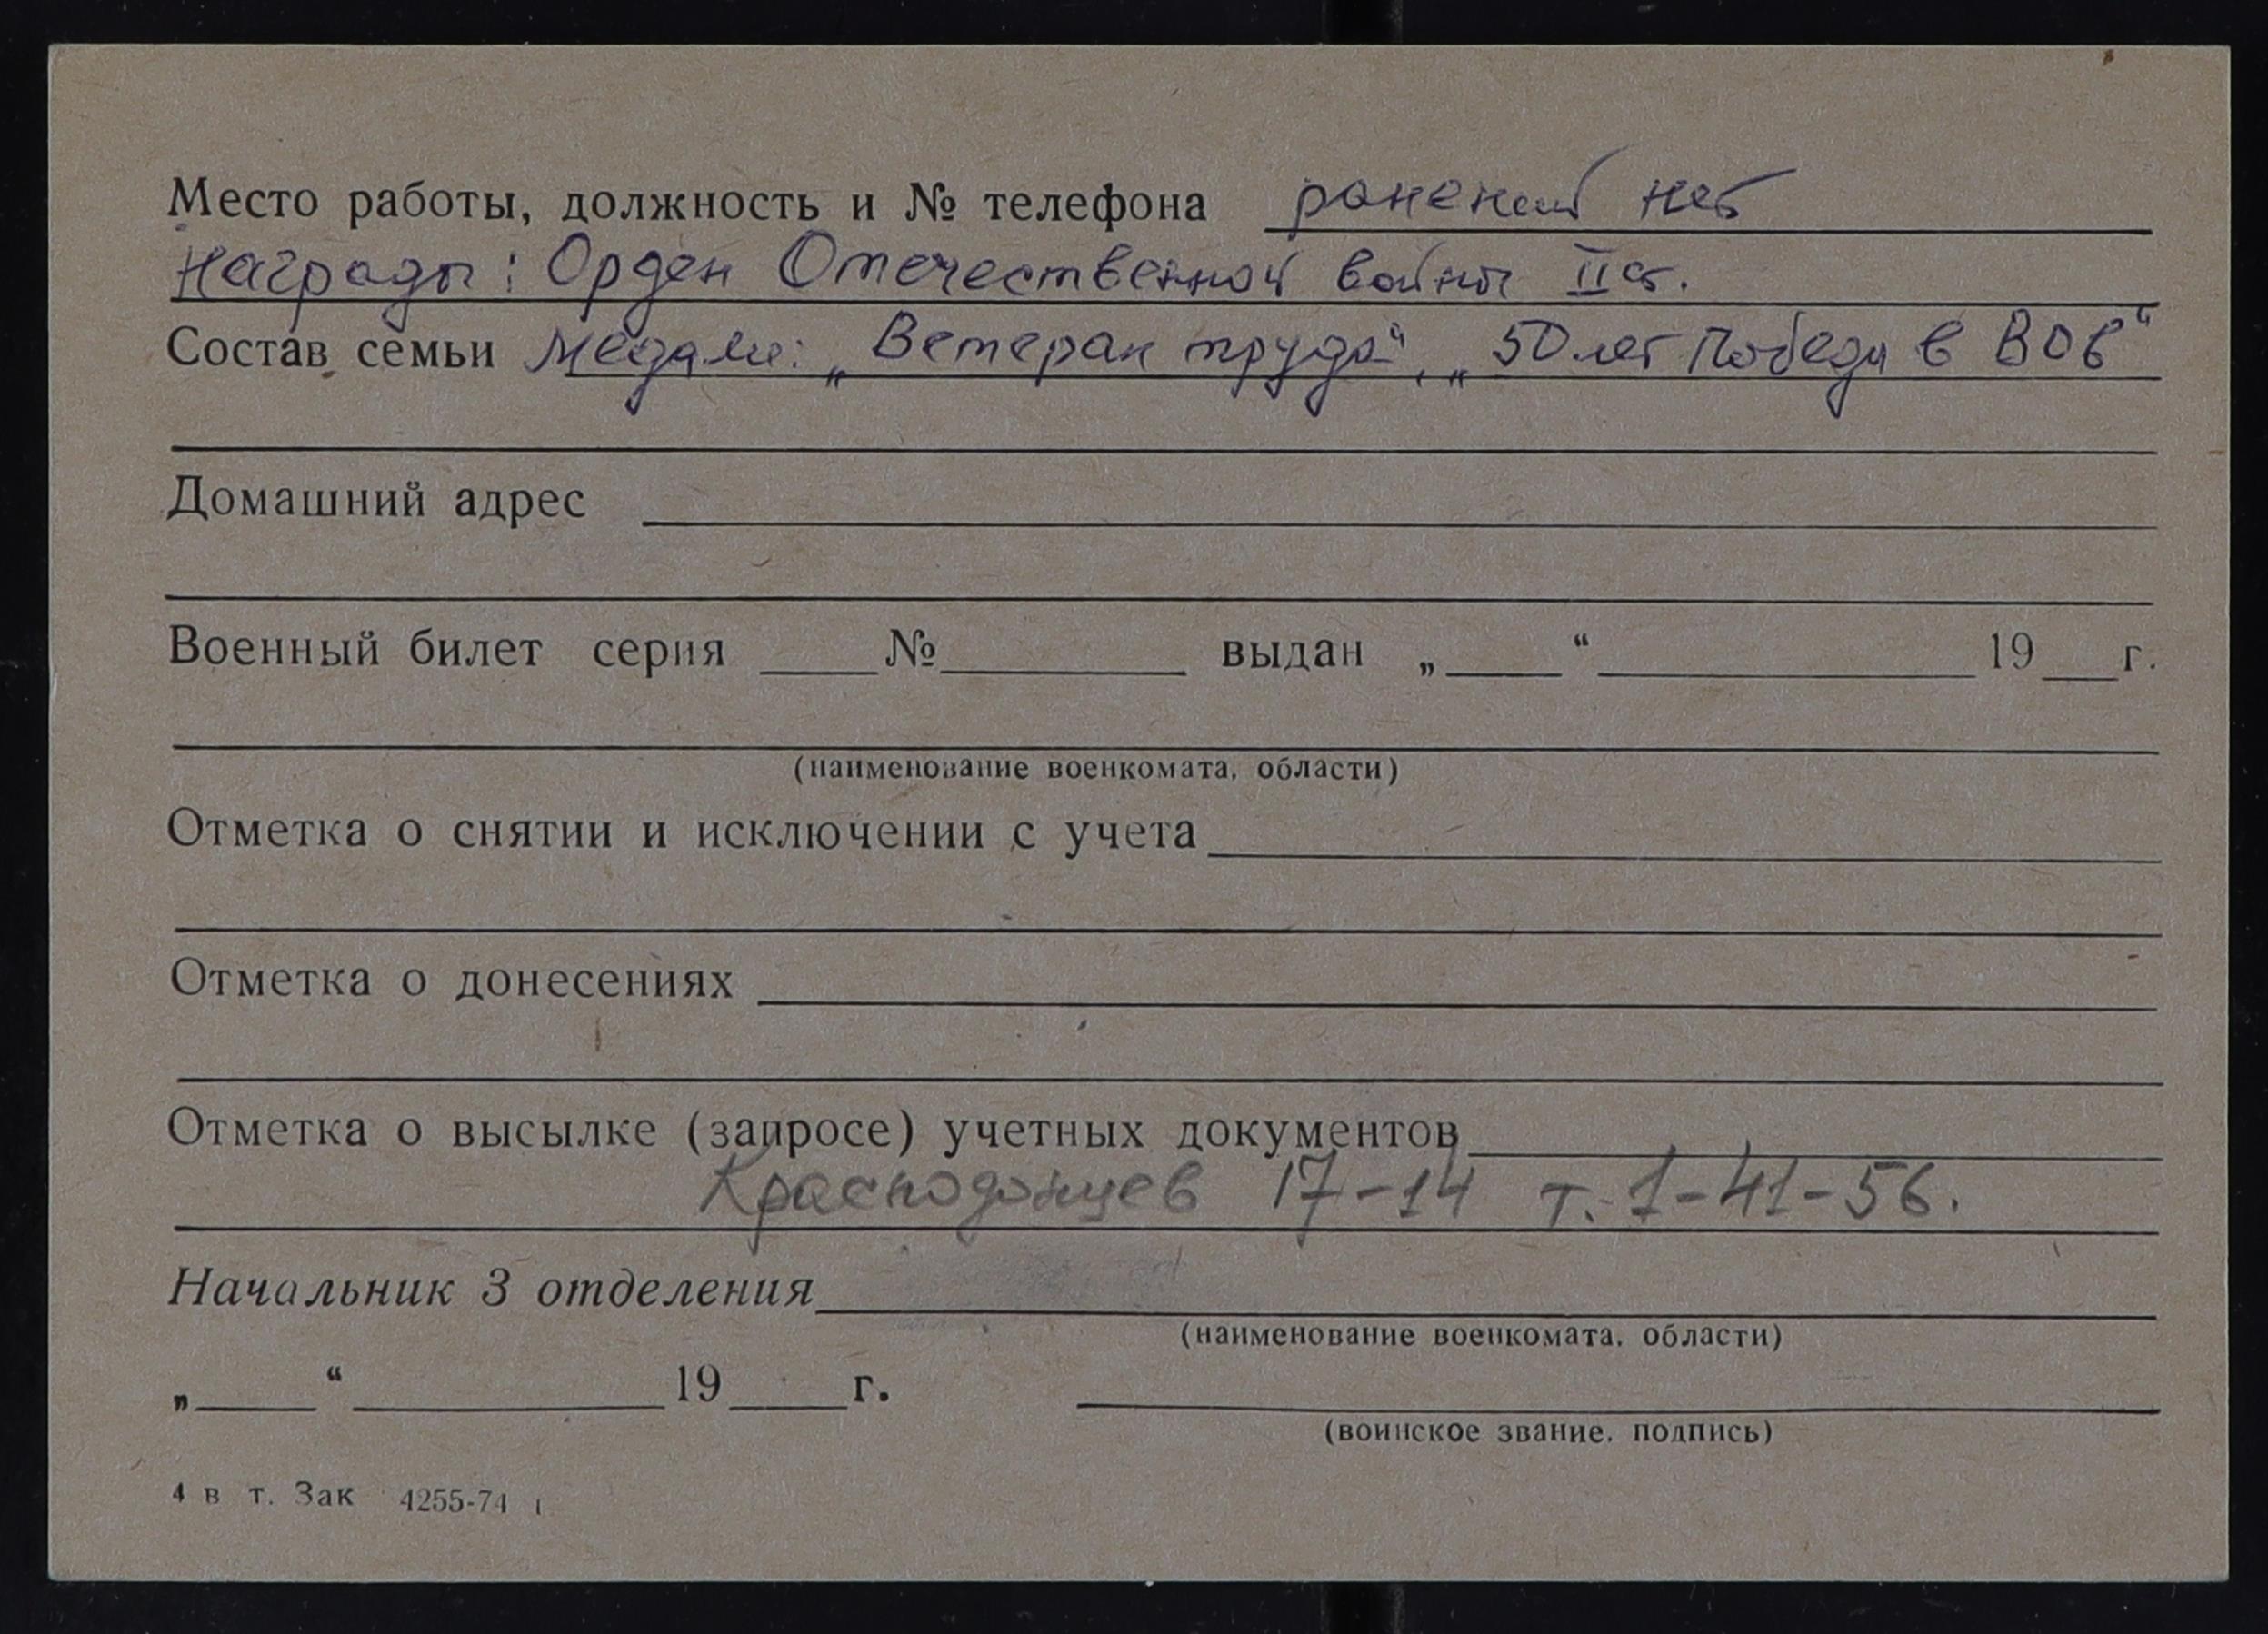 Место работы, должность и № телефона ранений нет
Награды: Орден Отечественной войны II ст.
Состав семьи Медали: „Ветеран труда“, „50 лет Победы в ВОв“
Домашний адрес
Военный билет серия ____ № ________ выдан „____“ ____________ 19___г.
(наименование военкомата, области)
Отметка о снятии и исключении с учета
Отметка о донесениях
Отметка о высылке (запросе) учетных документов
Краснодонцев 17-14 т. 1-41-56.
Начальник 3 отделения
(наименование военкомата, области)
„____“ __________ 19____г.
(воинское звание, подпись)
4 в т. Зак 4255-74 г